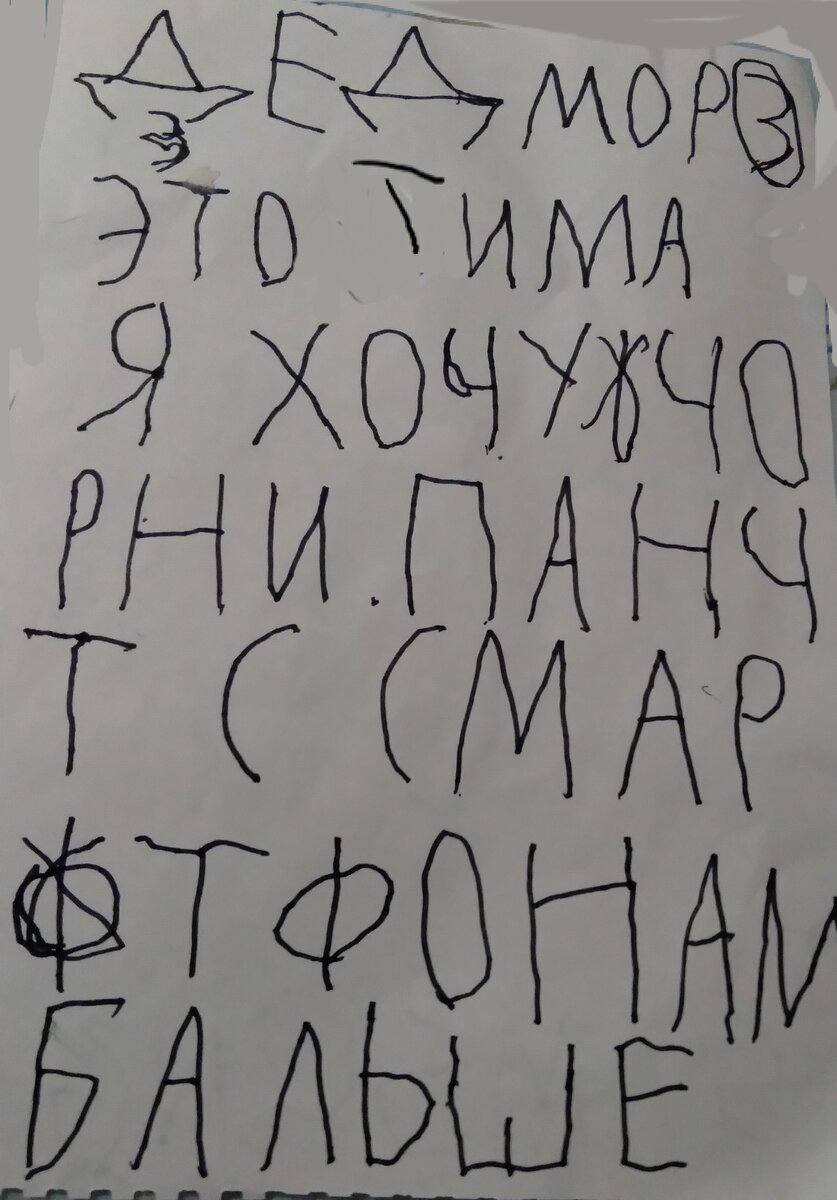 ДЕД МОРОЗ
ЭТО ТИМА
Я ХОЧУ ЖЧО
РНИ.ПАНЧ
Т С СМАР
ТФОНАМ
БАЛЬШЕ